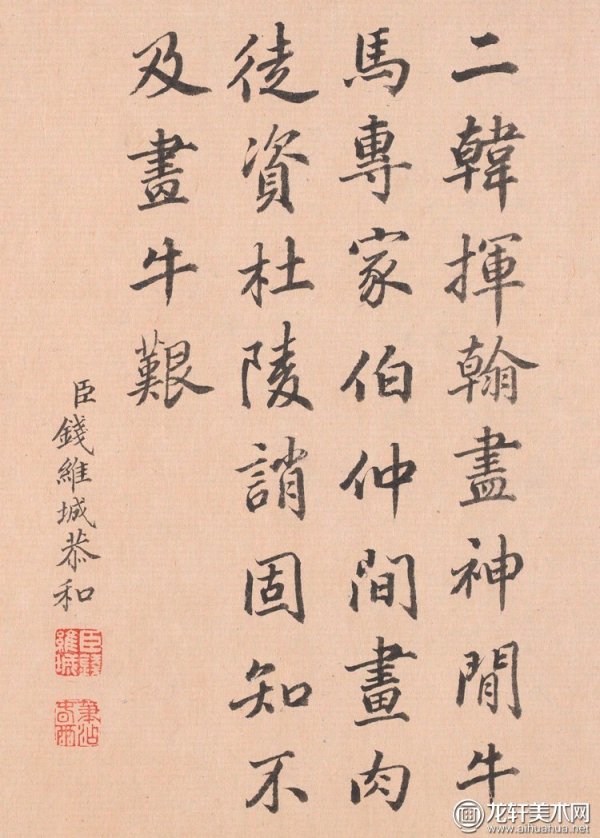 二韓揮翰盡神閒牛
馬專家伯仲間畫肉
徒資杜陵誚固知不
及畫牛艱
臣錢維城恭和
龙轩美术网
www.aihuahua.net